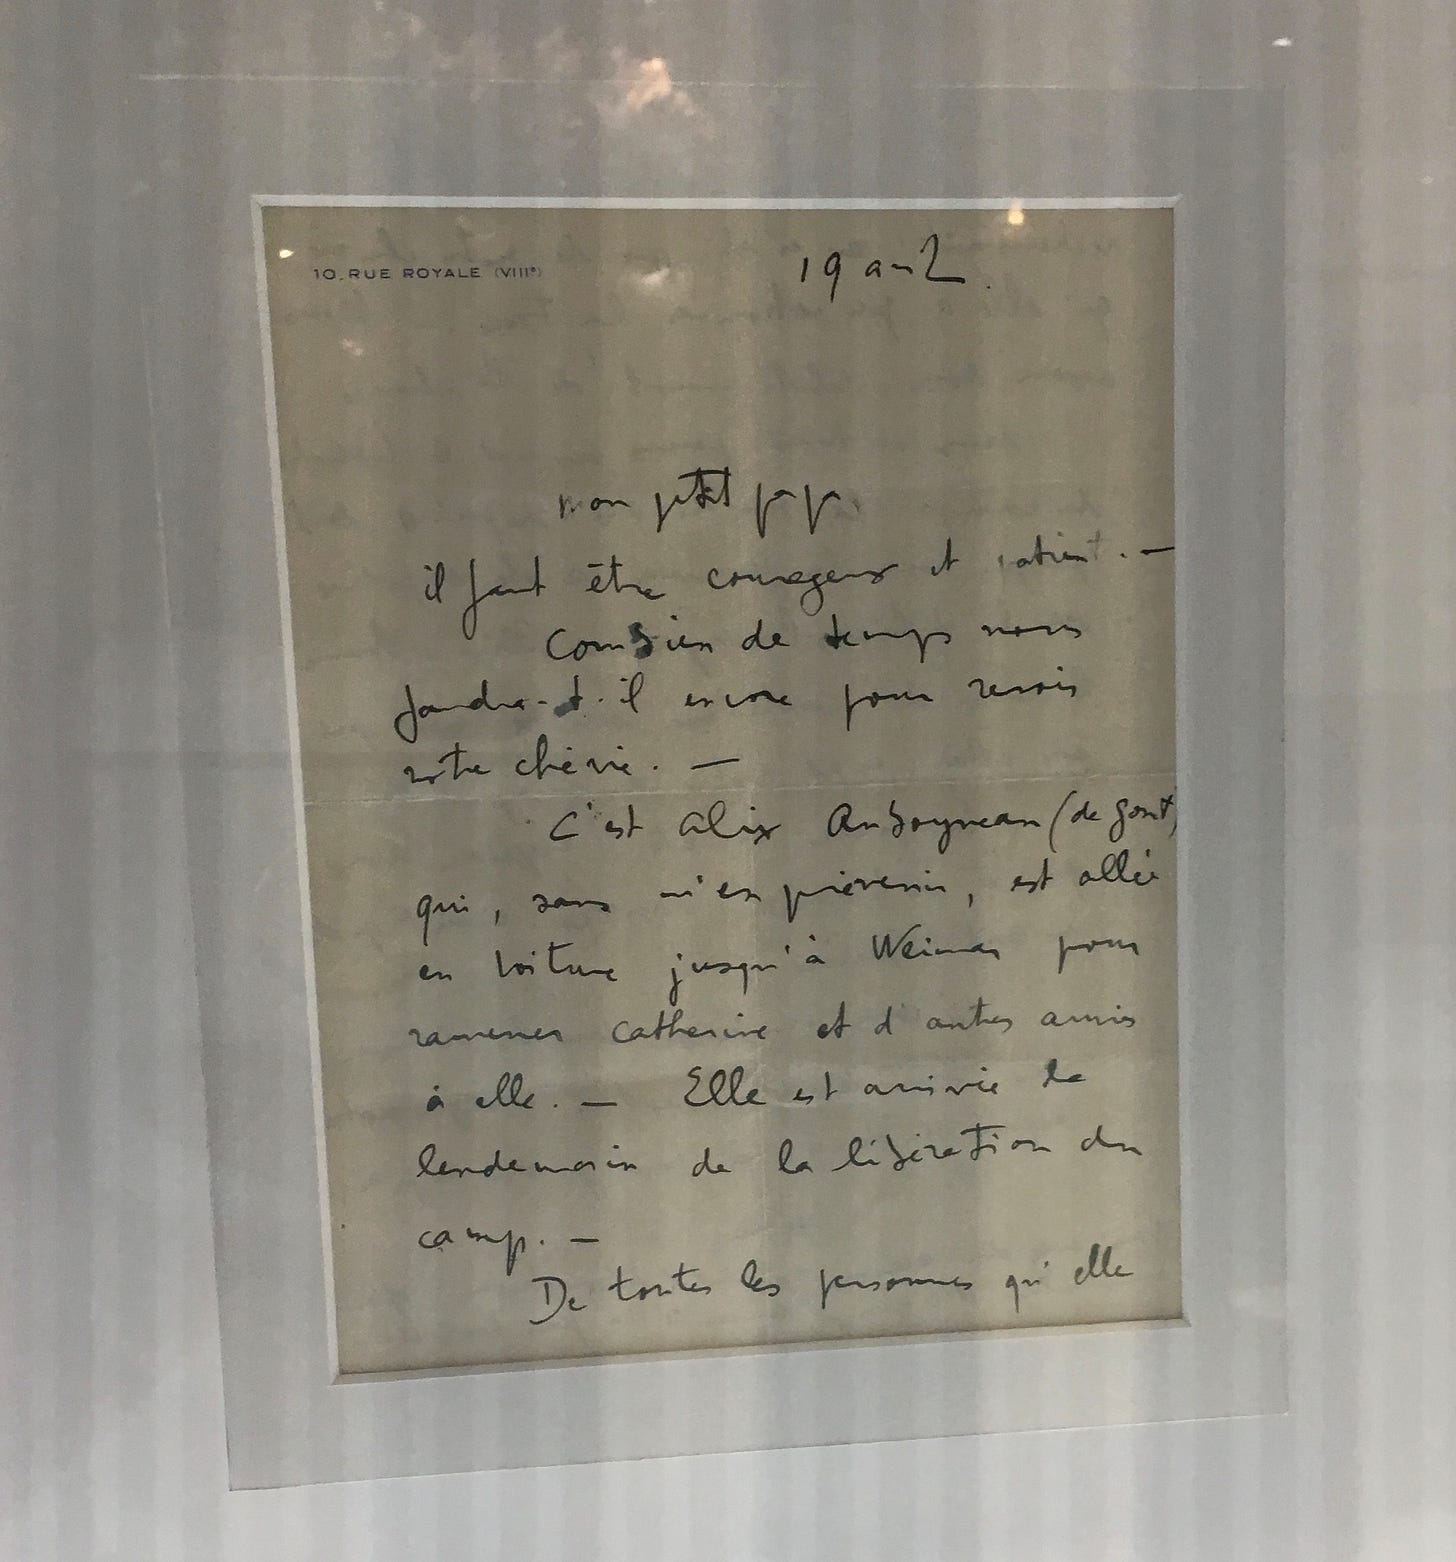 10, RUE ROYALE (VIIIe)
19 avril.
mon petit papa,
il faut être courageux et patient. —
Combien de temps nous
faudra-t-il encore pour revoir
notre chérie. —
C'est Alix Auboyneau (de Gont)
qui, sans m'en prévenir, est allée
en voiture jusqu'à Weimar pour
ramener Catherine et d'autres amis
à elle. — Elle est arrivée le
lendemain de la libération du
camp. —
De toutes les personnes qu'elle